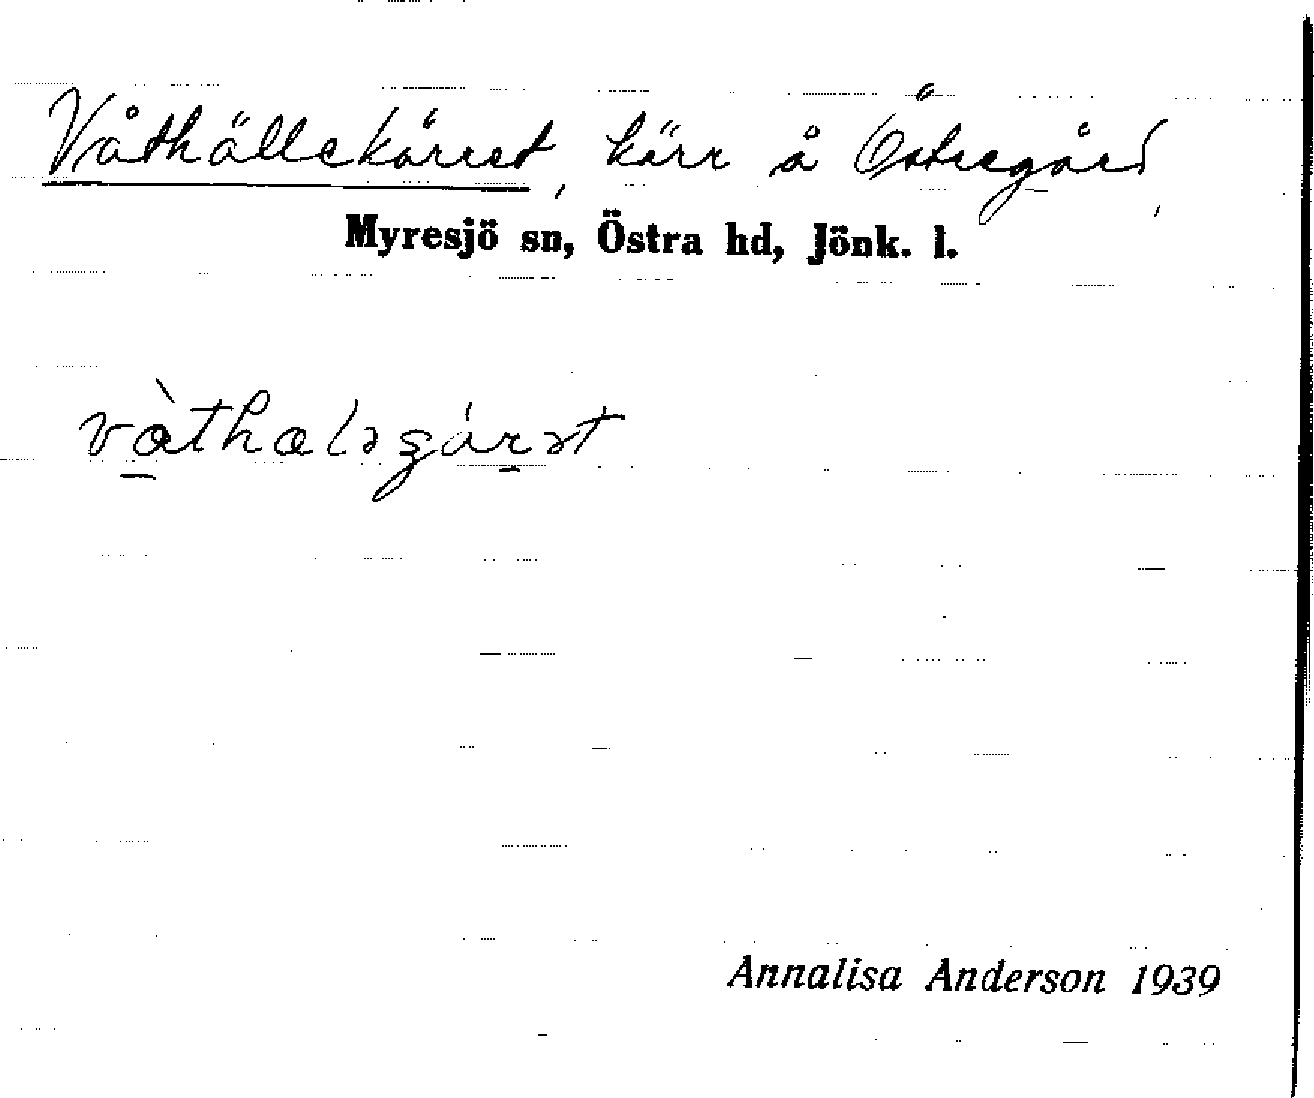 Våthällekärret, kärr å Östregård,
Myresjö sn, Östra hd, Jönk. l.
Annalisa Anderson 1939